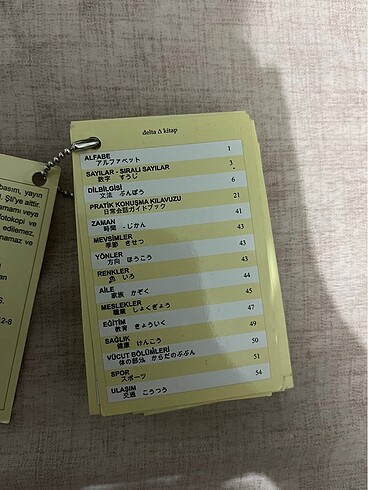 delta Δ kitap
ALFABE 1
アルファベット
SAYILAR - SIRALI SAYILAR 3
数字 すうじ
DİLBİLGİSİ 6
文法 ぶんぽう
PRATİK KONUŞMA KILAVUZU 21
日常会話ガイドブック
ZAMAN 41
時間 - じかん
MEVSİMLER 43
季節 きせつ
YÖNLER 43
方向 ほうこう
RENKLER 43
色 いろ
AİLE 44
家族 かぞく
MESLEKLER 45
職業 しょくぎょう
EĞİTİM 47
教育 きょういく
SAĞLIK 49
健康 けんこう
VÜCUT BÖLÜMLERİ 50
体の部分 からだのぶぶん
SPOR 51
スポーツ
ULAŞIM 54
交通 こうつう
basım, yayın
Şti'ye aittir.
amamı veya
fotokopi ve
edilemez,
namaz ve
an
S.
2-8